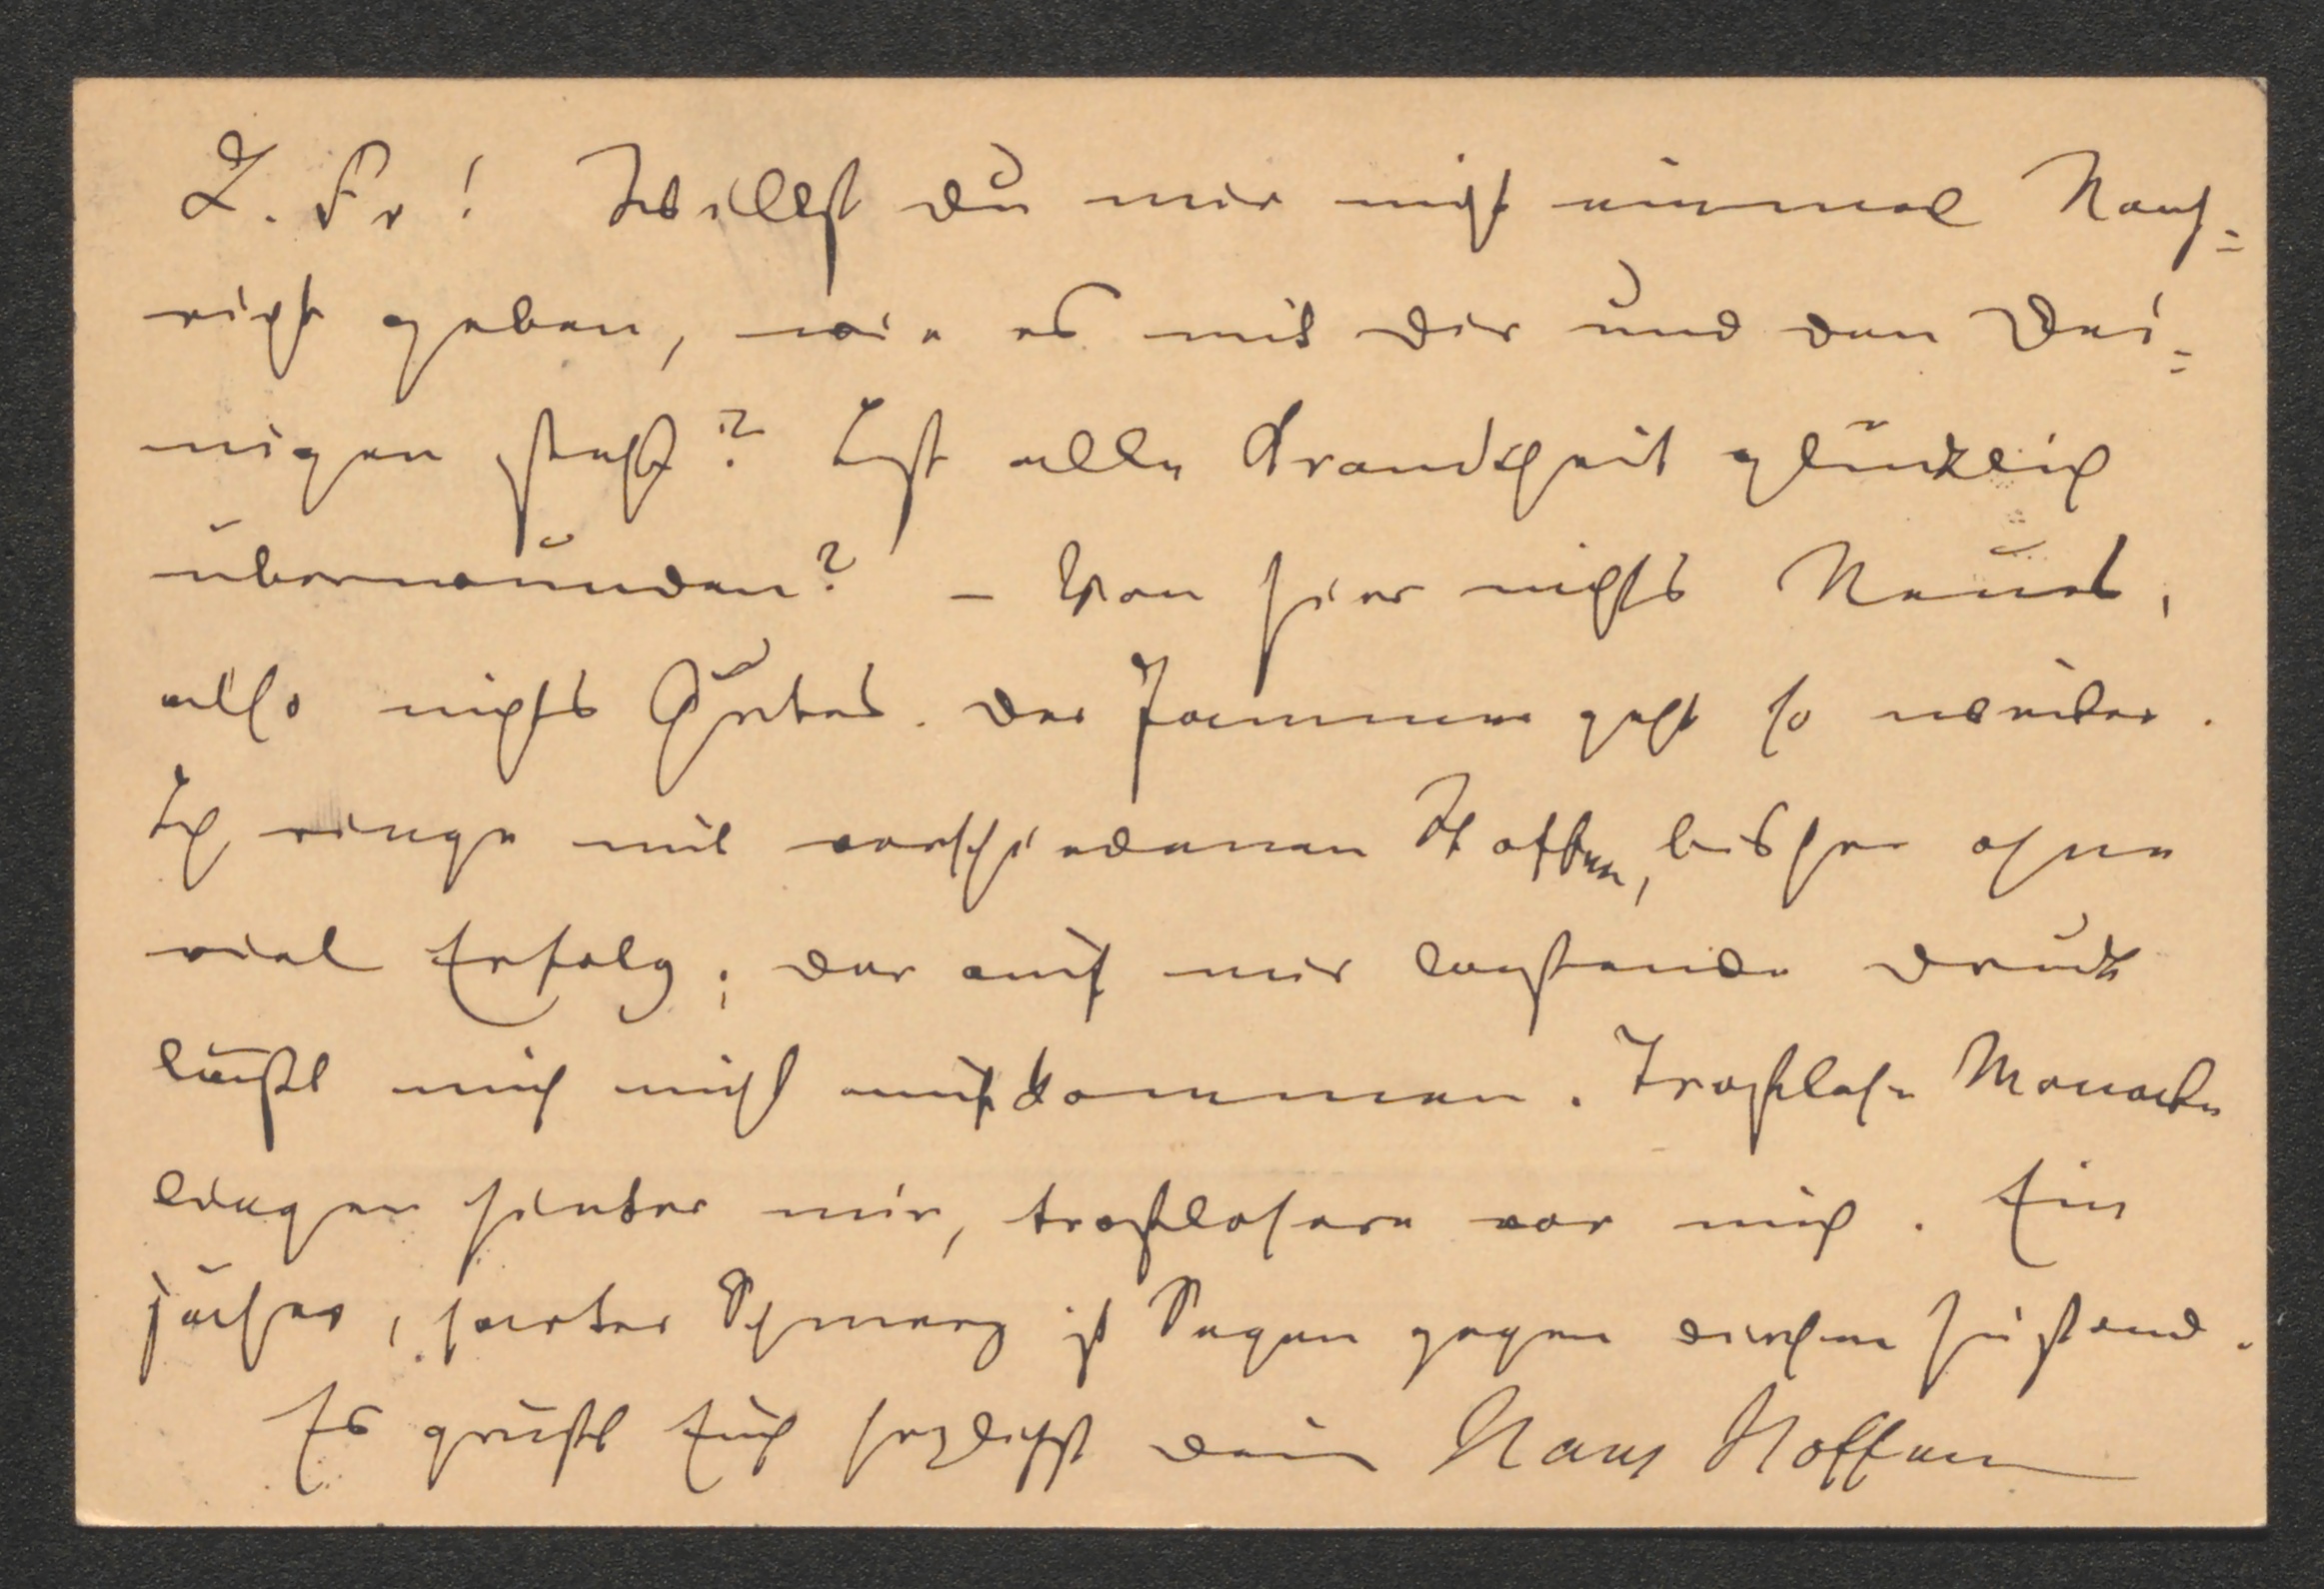 L. Fr! Willst du mir nicht einmal Nach=
richt geben, wie es mit dir und den Dei=
nigen steht? Ist alle Krankheit glücklich
überwunden? – Von hier nichts Neues,
also nichts Gutes. Der Jammer geht so weiter.
Ich ringe mit verschiedenen Stoffen, bisher ohne
viel Erfolg; der auf mir lastende Druck
läßt mich nicht aufkommen. Trostlose Monate
liegen hinter mir, trostlosere vor mir. Ein
jäher, harter Schmerz ist Segen gegen diesen Zustand.
Es grüßt Euch herzlichst dein Hans Hoffmann